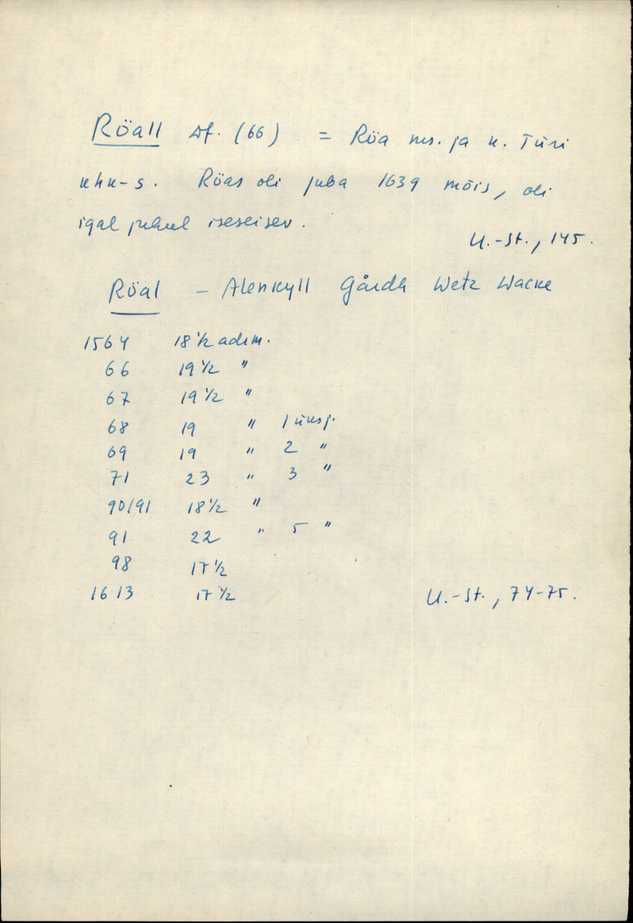 Röall Df. (66) = Röa ms. ja k. Türi
khk-s. Röas oli juba 1639 mõis, oli
igal juhul iseseisev.
U.-St., 145.
Röal - Alenkyll Gårdh Wetz Wacke
1564 18 1/2 adrm.
66 19 1/2 "
67 19 1/2 "
68 19 " 1 üksj.
69 19 " 2 "
71 23 " 3 "
90/91 18 1/2 "
91 22 " 5 "
98 17 1/2
1613 17 1/2
U.-St., 74-75.